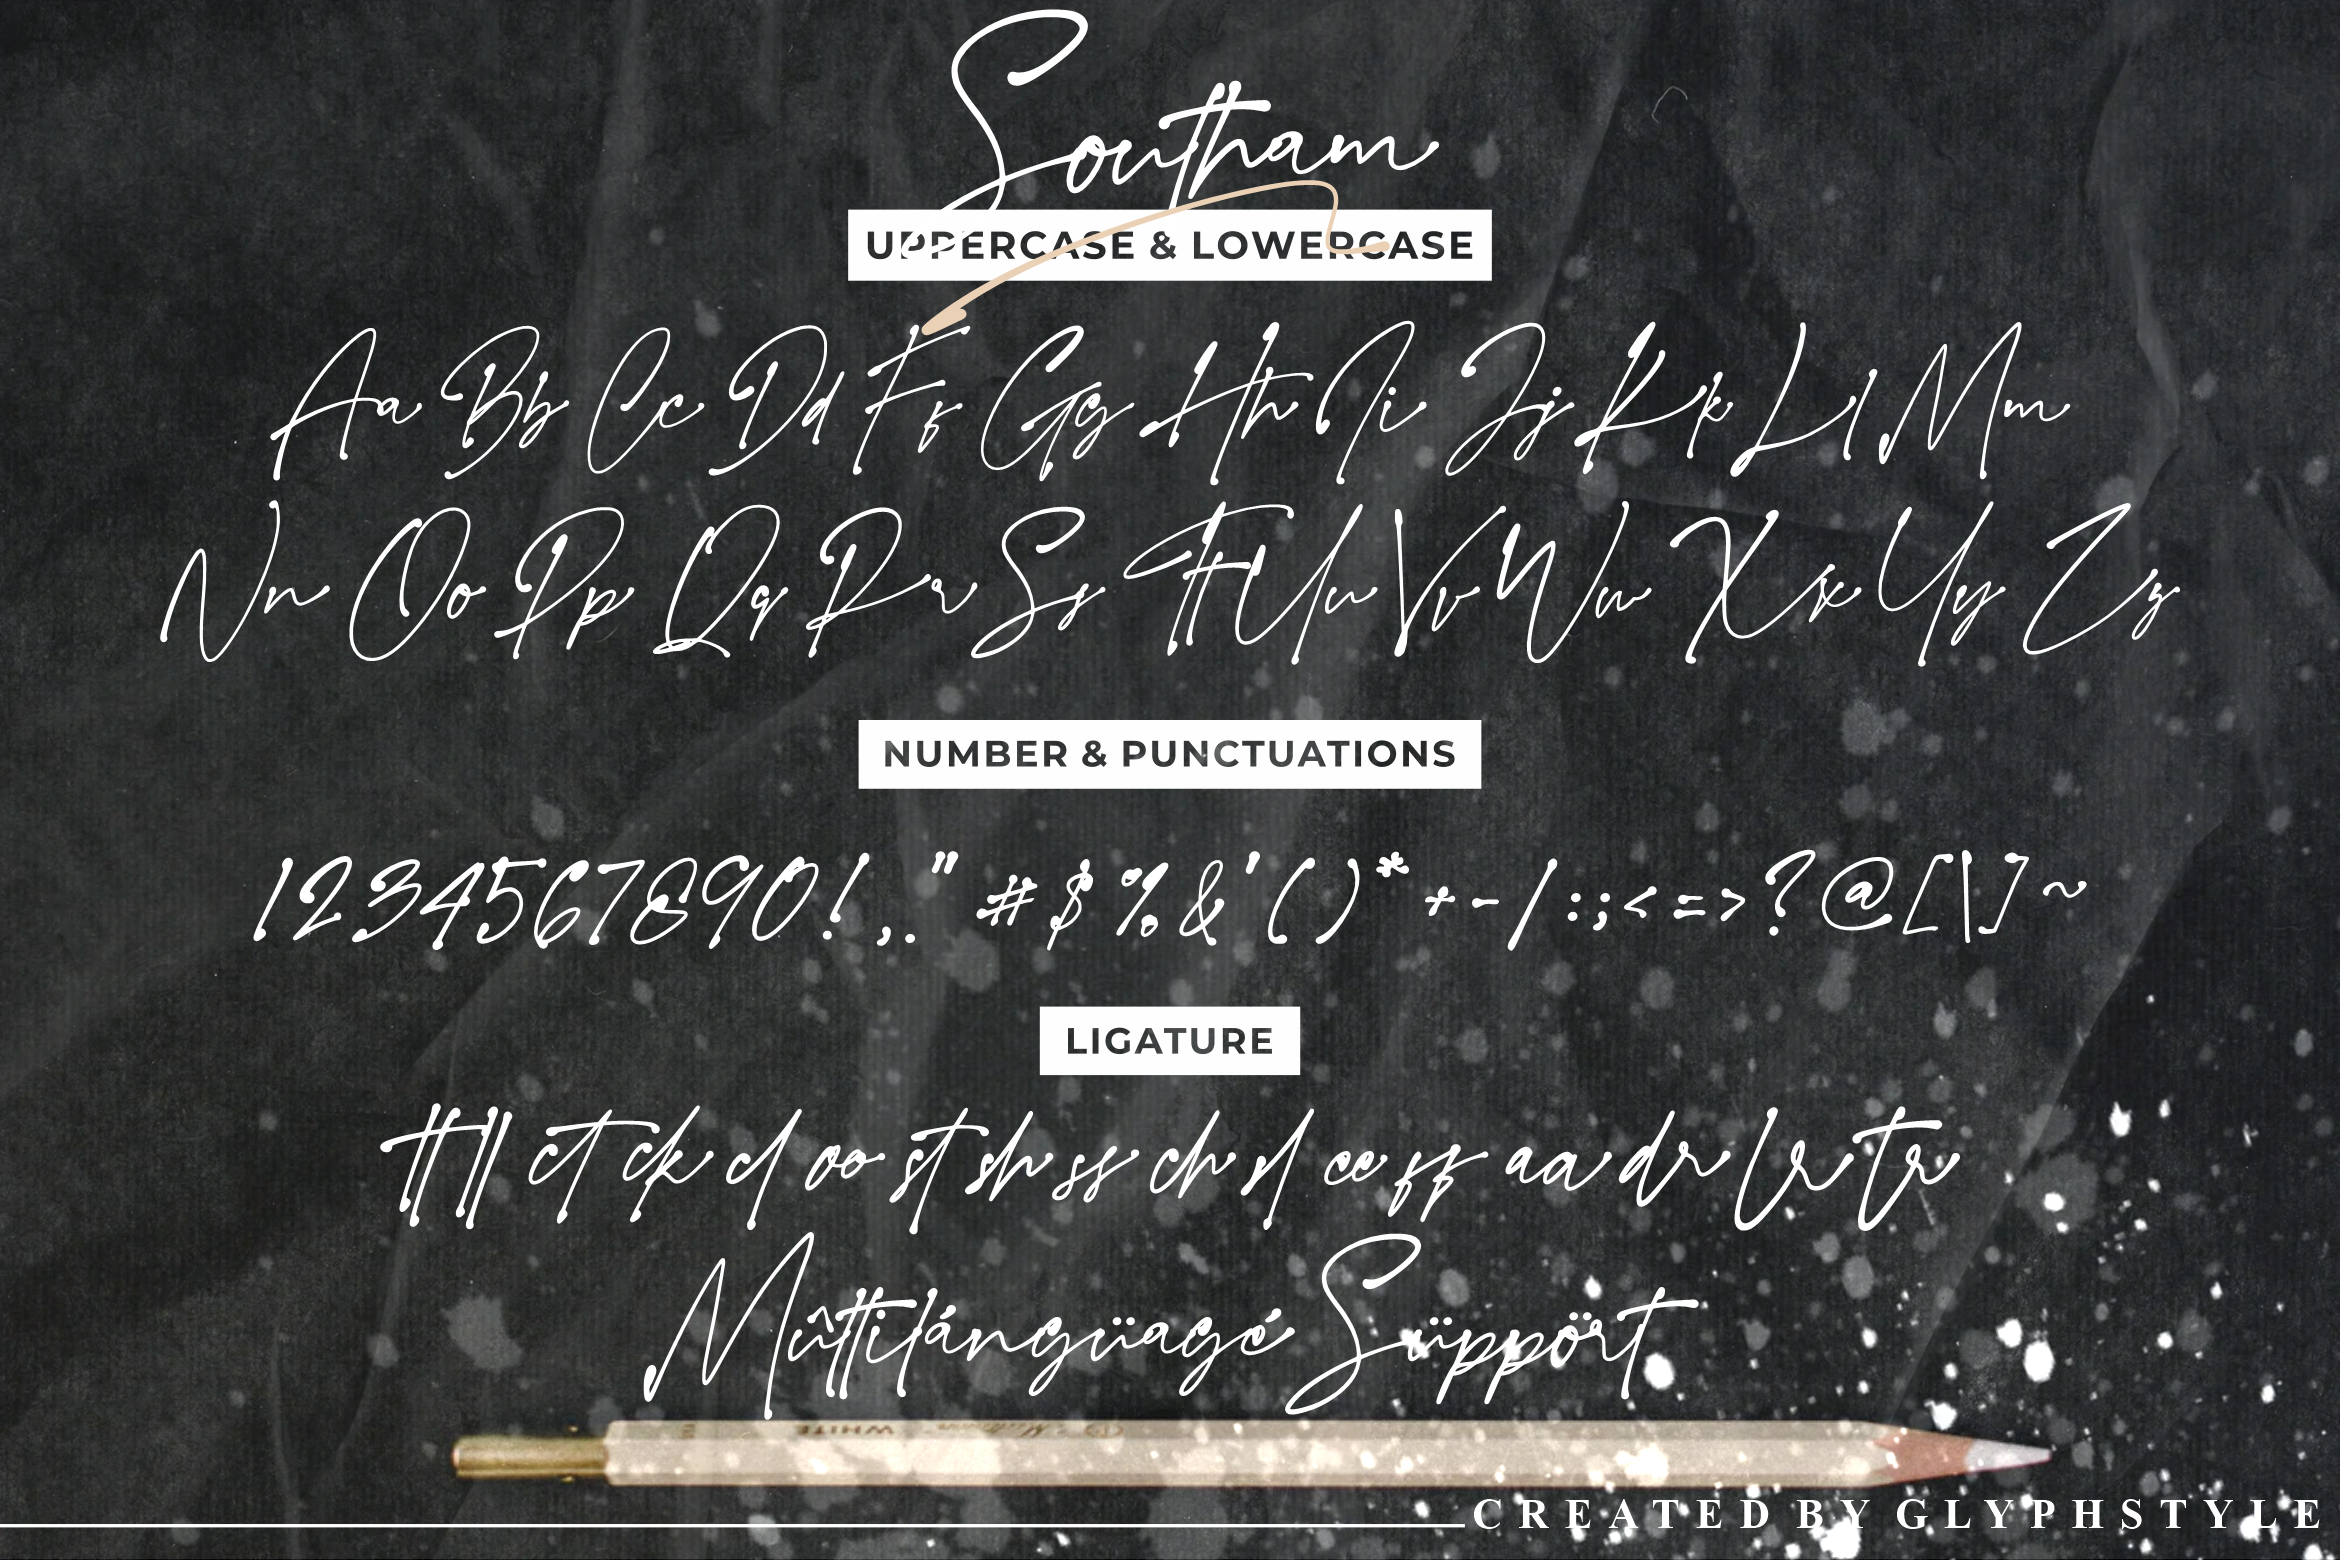 Southam
UPPERCASE & LOWERCASE
Aa Bb Cc Dd Ff Gg Hh Ii Jj Kk Ll Mm
Nn Oo Pp Qq Rr Ss Tt Uu Vv Ww Xx Yy Zz
NUMBER & PUNCTUATIONS
1234567890!,." #$%&'()*+-/:;<=>?@[\]~
LIGATURE
tt ll ct ck cl oo st sh ss ch sl ee ff aa dr lr tr
Mûltilángüagé Süppört
WHITE
CREATED BY GLYPHSTYLE